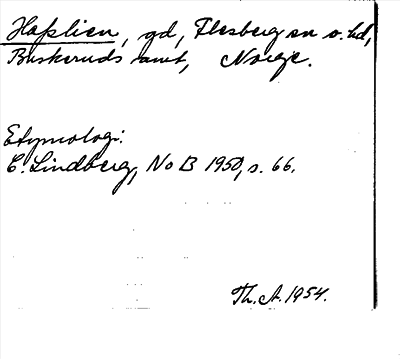 Haslien, gd, Flesberg sn o. hd,
Buskeruds amt, Norge.
Etymologi:
C. Lindberg, No B 1950, s. 66.
Th. A. 1954.